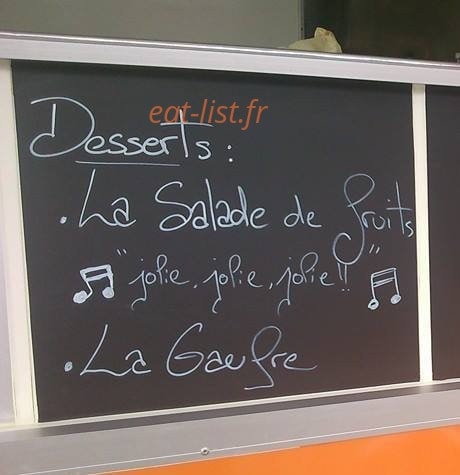 eat-list.fr
Desserts :
. La Salade de fruits
♫ "jolie, jolie, jolie !!" ♫
. La Gaufre